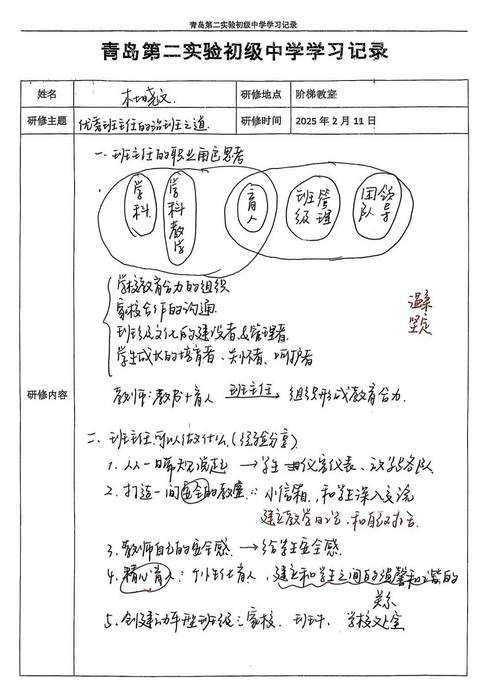 青岛第二实验初级中学学习记录
青岛第二实验初级中学学习记录
姓名
研修地点 阶梯教室
研修主题 优秀班主任的治班之道
研修时间 2025 年 2 月 11 日
研修内容
一、班主任的职业角色思考
学科 学科教学 育人 班级管理 团队领导
学校教育合力的组织
家校合作的沟通
班级文化的建设者及管理者
学生成长的培育者、关怀者、呵护者
温柔
坚定
教师:教书+育人 班主任 组织形成教育合力
二、班主任可以做什么(经验分享)
1、从一日常规说起 →学生 仪容仪表、
2、打造一间安全的教室:小信箱,和学生深入交流
3、教师自己的安全感 →给学生安全感
4、精心育人:个性化育人,建立和学生之间的温馨和谐的
关系
5、创建动车型班级:家校、班科、学校处室